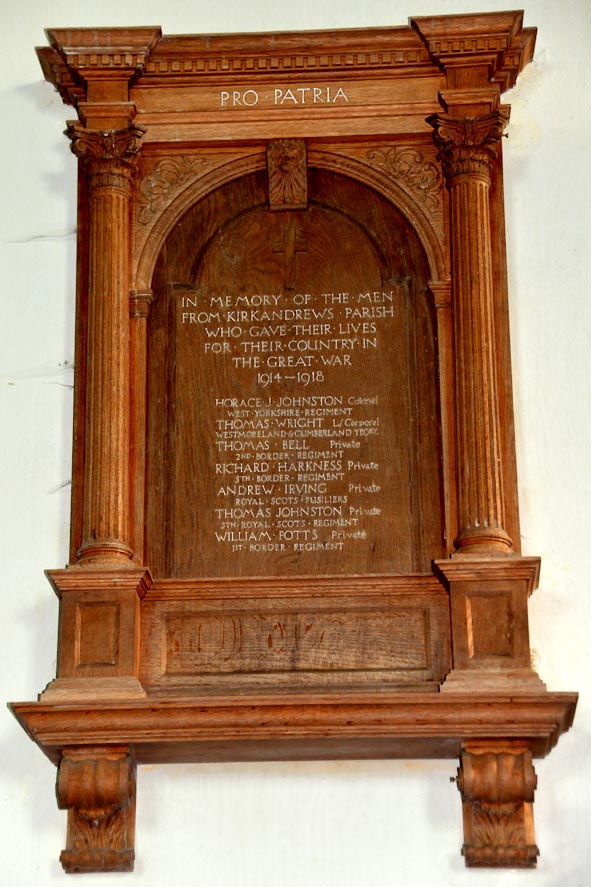 PRO · PATRIA
IN · MEMORY · OF · THE · MEN
FROM · KIRKANDREWS · PARISH
WHO · GAVE · THEIR · LIVES
FOR · THEIR · COUNTRY · IN
THE · GREAT · WAR
1914—1918
HORACE · J · JOHNSTON Colonel
WEST · YORKSHIRE · REGIMENT
THOMAS · WRIGHT L/Corporal
WESTMORELAND & CUMBERLAND YEORY.
THOMAS · BELL Private
2ND · BORDER · REGIMENT
RICHARD · HARKNESS Private
5TH · BORDER · REGIMENT
ANDREW · IRVING Private
ROYAL · SCOTS · FUSILIERS
THOMAS JOHNSTON Private
5TH · ROYAL · SCOTS · REGIMENT
WILLIAM · POTTS Private
1ST · BORDER · REGIMENT